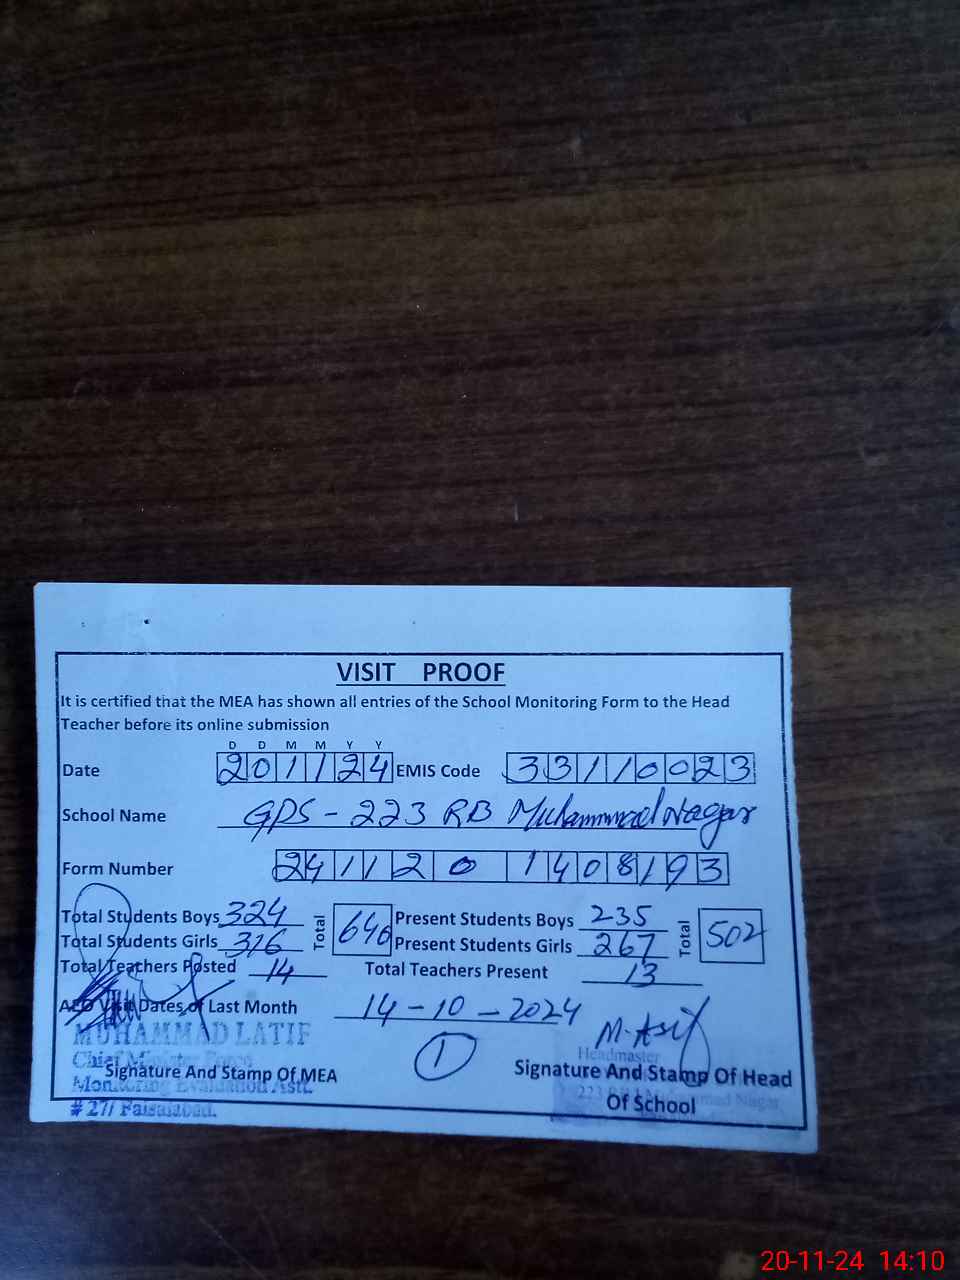 VISIT PROOF
It is certified that the MEA has shown all entries of the School Monitoring Form to the Head
Teacher before its online submission
D D M M Y Y
Date 201124 EMIS Code 33110023
School Name GPS - 223 RB Muhammad Nagar
Form Number 241120 1408193
Total Students Boys 324 Total 640 Present Students Boys 235 Total 502
Total Students Girls 316 Present Students Girls 267
Total Teachers Posted 14 Total Teachers Present 13
AEO Visit Dates of Last Month 14-10-2024
M. Asif
MUHAMMAD LATIF
1
Headmaster
Chief Minister Force
Signature And Stamp Of MEA
Signature And Stamp Of Head
Monitoring Evaluation Astt.
223 RB Muhammad Nagar
Of School
# 27/ Faisalabad.
20-11-24 14:10